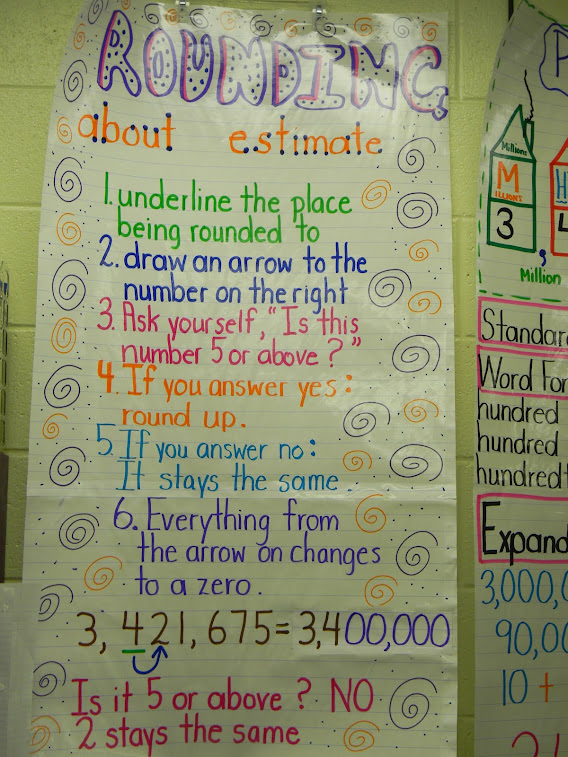 ROUNDING
about estimate
1. underline the place
being rounded to
2. draw an arrow to the
number on the right
3. Ask yourself, "Is this
number 5 or above?"
4. If you answer yes:
round up.
5. If you answer no:
It stays the same.
6. Everything from
the arrow on changes
to a zero.
3,421,675=3,400,000
Is it 5 or above? NO
2 stays the same
P
Millions
M
ILLIONS
3
,
H
4
Million
Standar
Word For
hundred
hundred
hundred
Expand
3,000,0
90,00
10 +